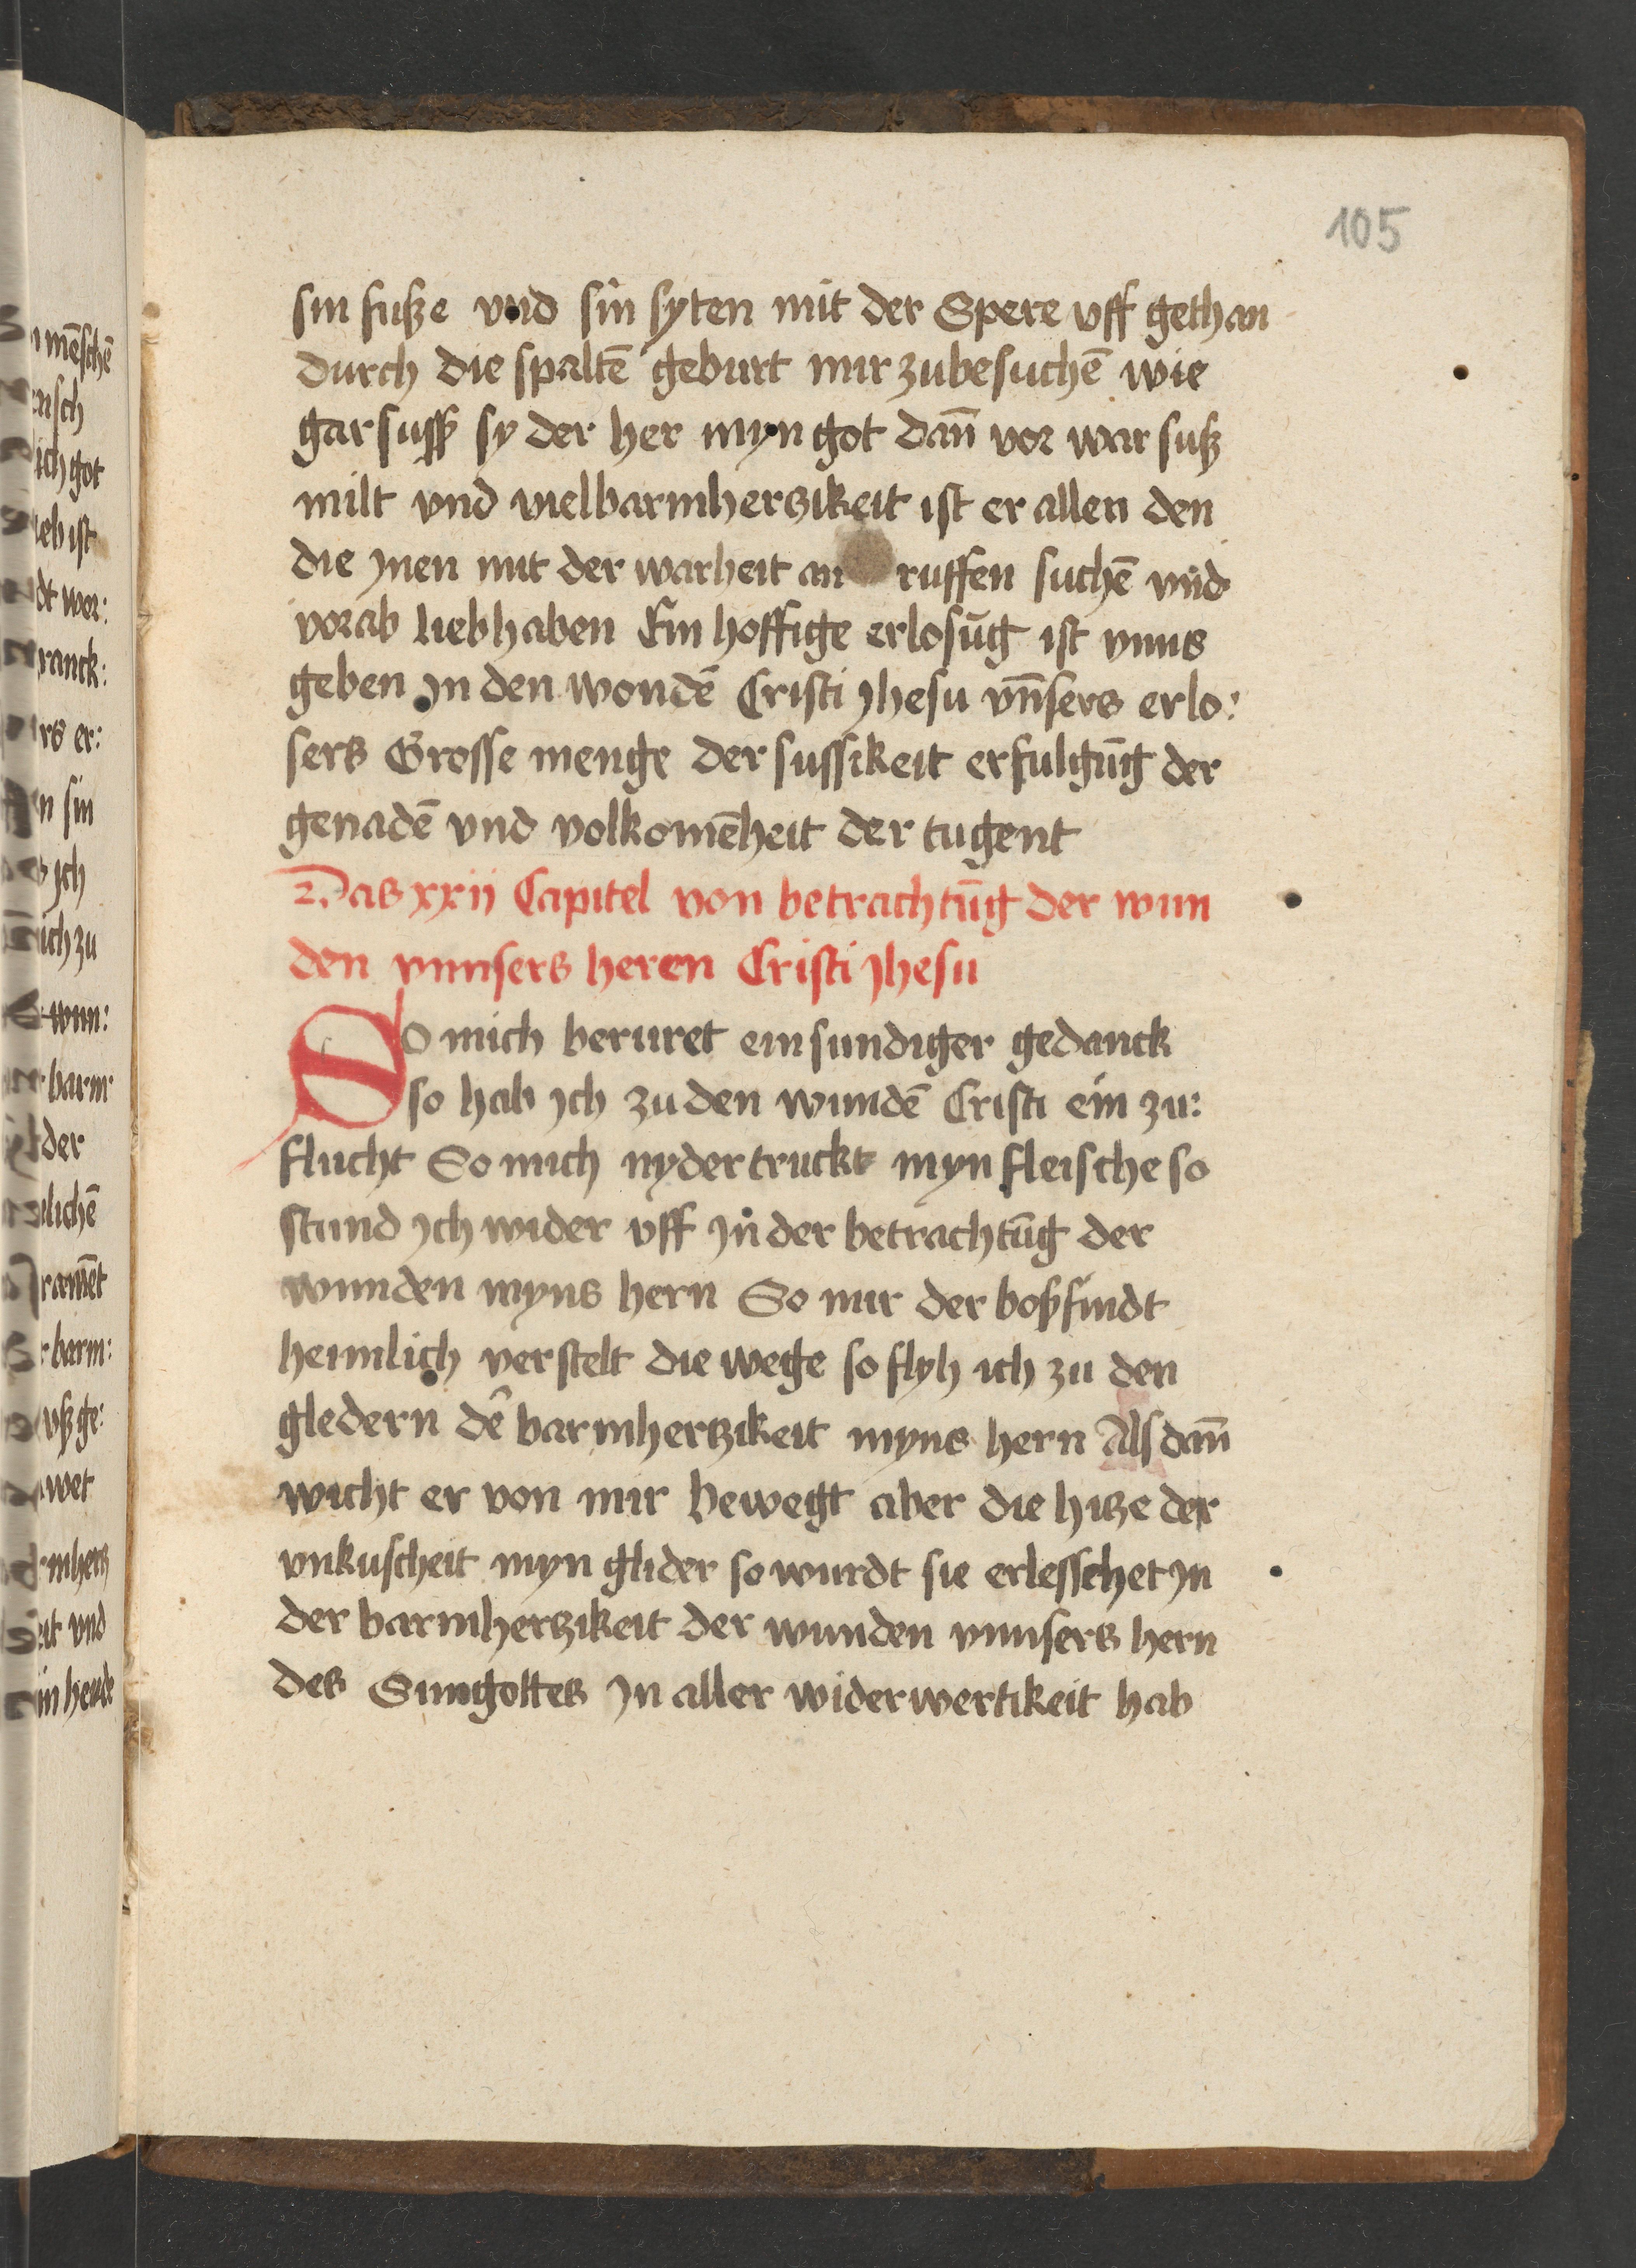 105
sin fusze vnd sin syten mit der Spere vff gethan
durch die spaltē geburt mir zubesuchē wie
gar suß sy der her myn got dañ vor war susz
milt vnd vielbarmherszikeit ist er allen den
die Jnen mit der warheit an ruffen suchē vnd
vorab liebhaben Ein hoffige erlosūg ist vnns
geben Jn den wondē Cristi Jhesu vñsers erlo:
sers Grosse menge der sussikeit erfulgūg der
genadē vnd volkomēheit der tugent
Das xxij Capitel von betrachtūg der wun
den vnnsers heren Cristi Jhesu
So mich beruret ein sundiger gedanck
so hab Jch zu den wundē Cristi ein zu:
flucht So mich nyder truckt myn fleische so
stund Jch wider vff Jn der betrachtūg der
wunden myns hern So mir der boß findt
heimlich verstelt die wege so flyh ich zu den
gledern dē barmhertzikeit myns hern Als dañ
wicht er von mir bewegt aber die hitze der
vnkuscheit myn glider so wurdt sie erlesschet Jn
der barmherszikeit der wunden vnnsers hern
des Sungottes Jn aller widerwertikeit hab
mēschē
ich got
ranck:
rs er:
sin
Jch
ich zu
wun:
barm
der
lichē
barm:
vnd